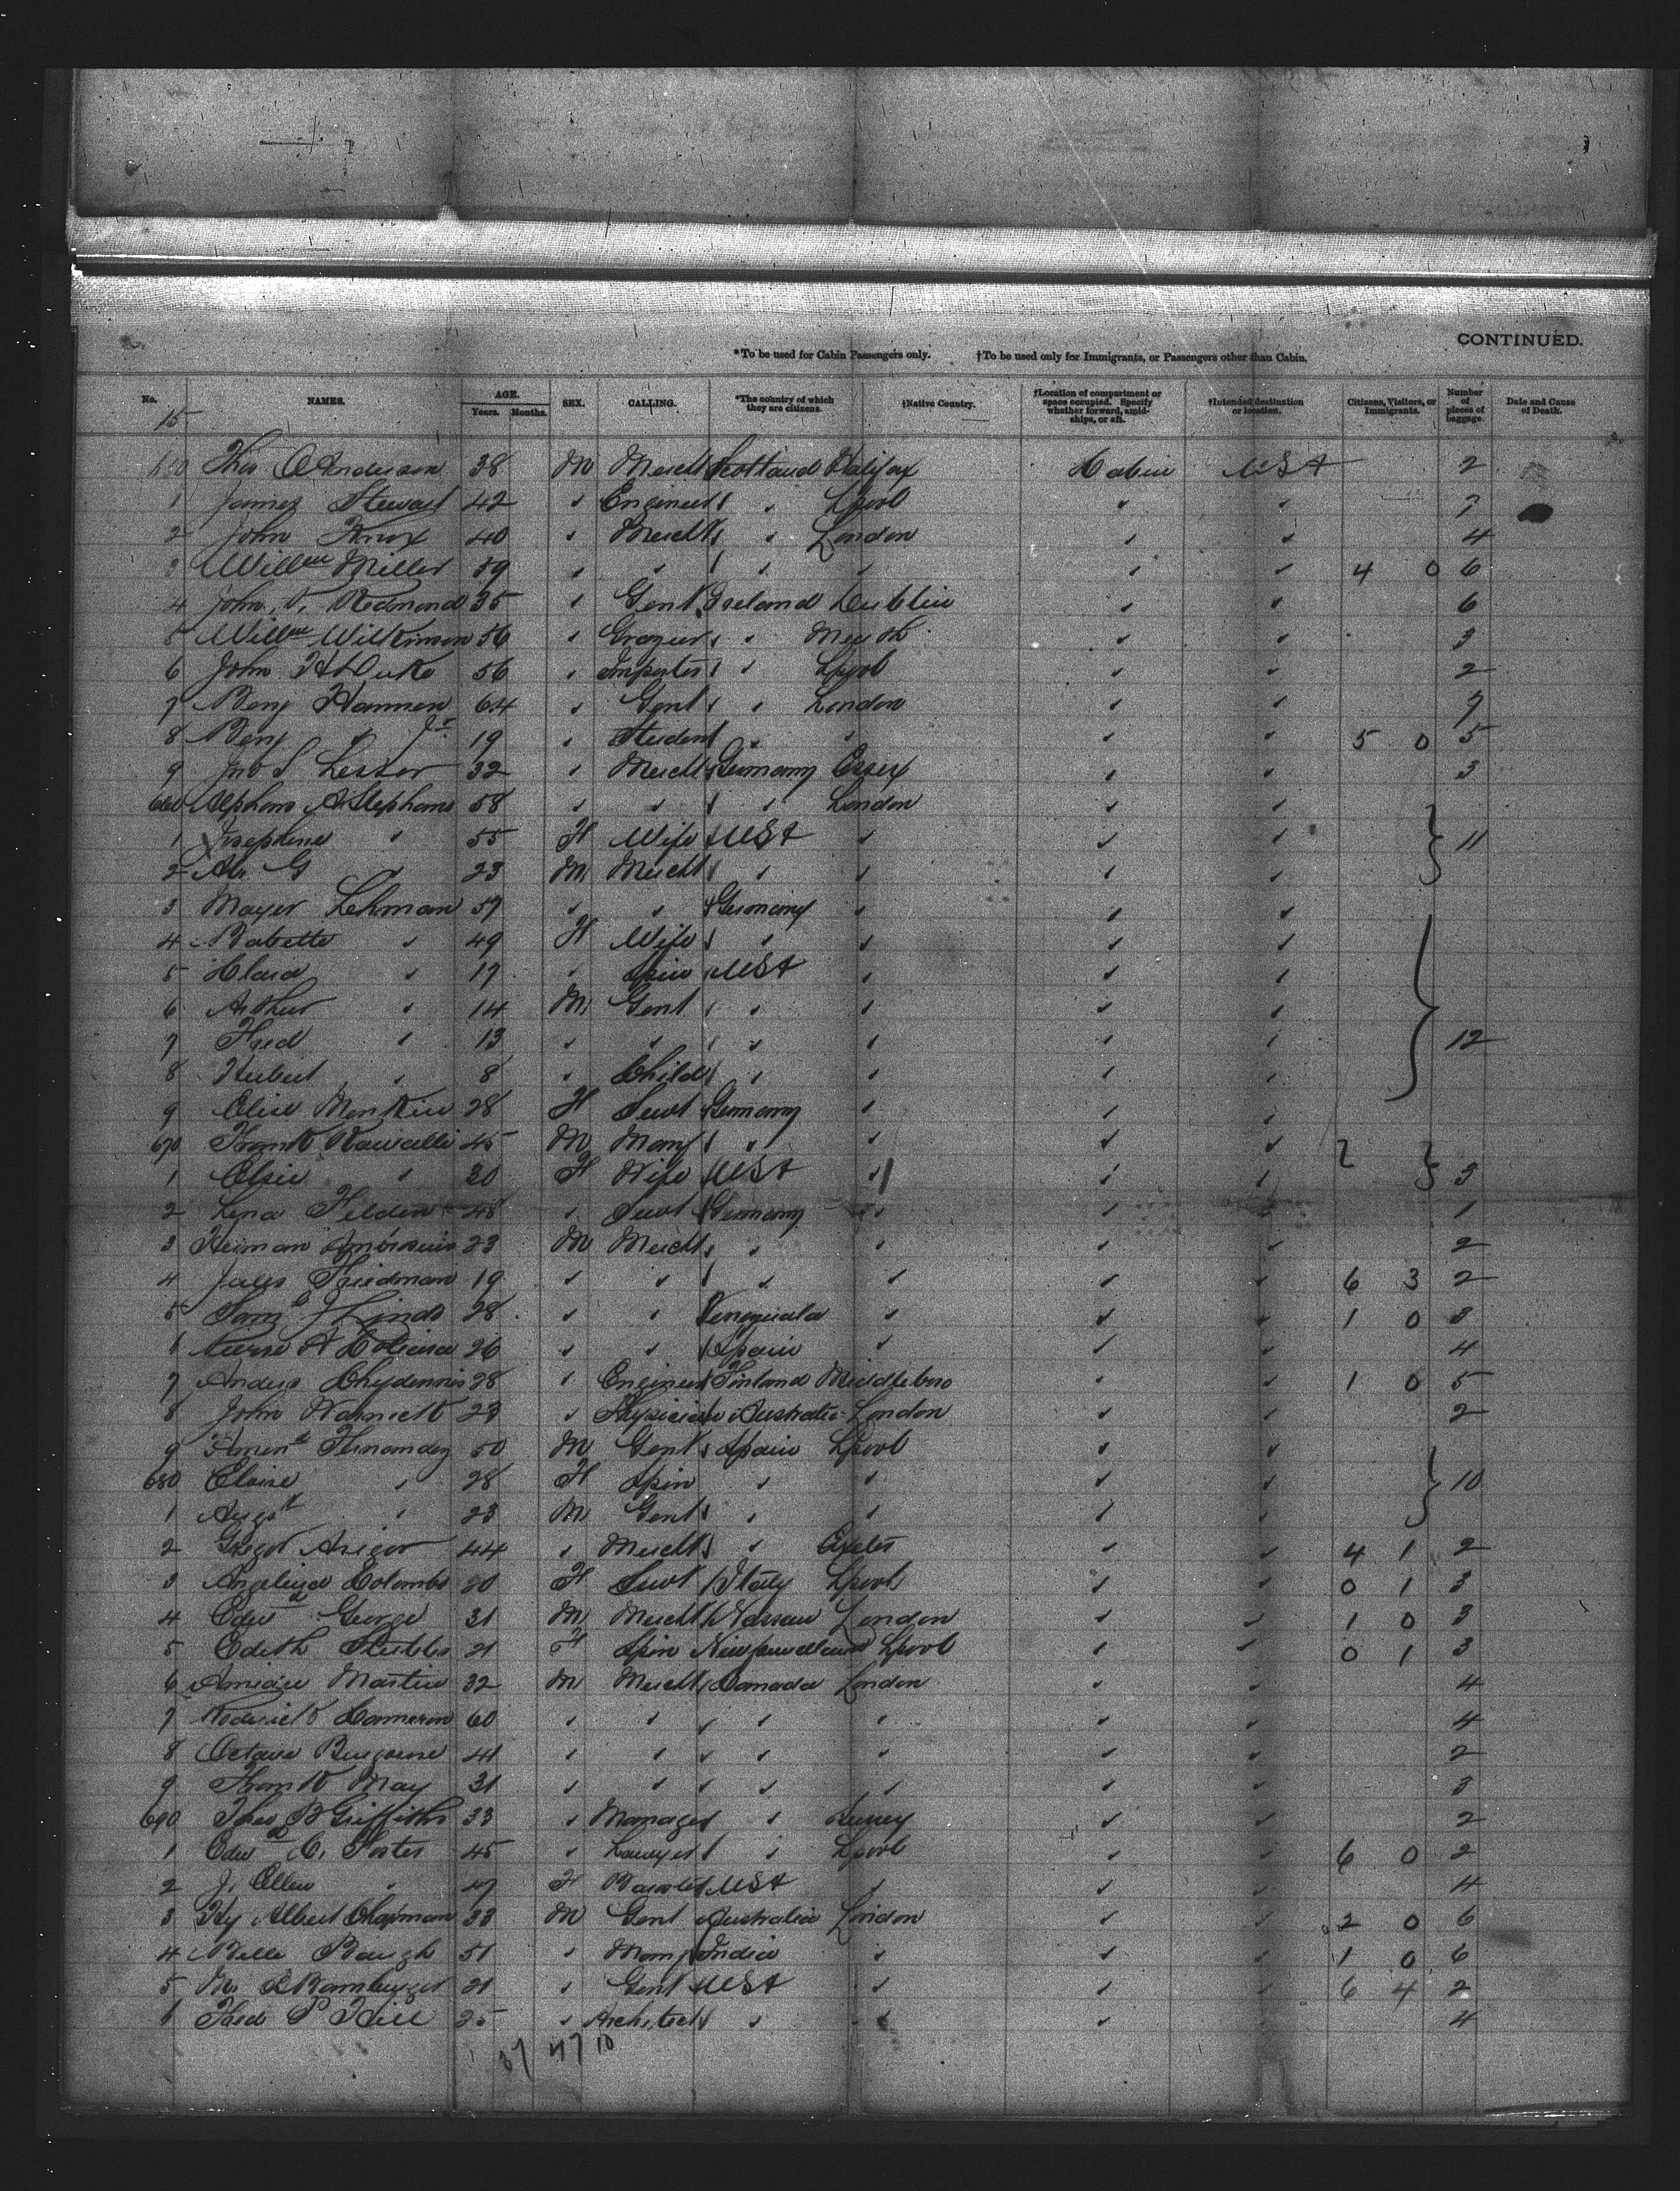 CONTINUED.
*To be used for Cabin Passengers only. †To be used only for Immigrants, or Passengers other than Cabin.
No. NAMES. AGE. Years. Months. SEX. CALLING. *The country of which they are citizens. †Native Country. †Location of compartment or space occupied. Specify whether forward, amidships, or aft. †Intended destination or location. Citizens, Visitors, or Immigrants. Number of pieces of baggage. Date and Cause of Death.
15
Thos Anderson 38 M Mercht Scotland Halifax Cabin USA 2
1 James Stewart 42 " Engineer " Lpool " "
2 John Knox 40 " Mercht " London " " 4
3 Willm Miller 39 " " " " " " 4 0 6
4 John Redmond 35 " Gent Ireland Dublin " " 6
5 Willm Wilkinson 56 " Grazier " Meath " " 3
6 John H Duke 56 " Importer " Lpool " " 2
7 Benj Hannen 64 " Gent " London " "
8 Benj " Jr 19 " Student " " " " 5 0 5
9 Jno S Lesser 32 " Mercht Germany Essex " " 3
660 Alphons A Stephans 58 " " " London " "
1 Josephine " 55 F Wife USA " " " 11
2 " 23 M Mercht " " " "
3 Mayer Lehman 57 " " Germany " " "
4 Babette " 49 F Wife " " " "
5 Clara " 17 " Spin USA " " "
6 Arthur " 14 M Gent " " " "
7 Fred " 13 " " " " " " 12
8 Herbert " 8 " Child " " " "
9 Elise 28 F Servt Germany " " "
670 Frank 45 M Manf " " " "
1 Elsie " 30 F Wife USA " " " 3
2 Lena Felden 48 " Servt Germany " " " 1
3 Heiman 23 M Mercht " " " " 2
4 Jules Friedman 19 " " " " " " 6 3 2
5 Saml J Lindo 28 " " Venezuela " " " 1 0 3
26 " " Spain " " " 4
7 Anders Chydenius 28 " Engineer Finland Middleboro " " 1 0 5
8 John Warnick 23 " Physician Australia London " " 2
9 Fernandez 50 M Gent Spain Lpool " "
680 Eloise " 28 F Spin " " " " 10
1 Augst " 23 M Gent " " " "
2 44 " Mercht " Exeter " " 4 1 2
3 Angelina Colombo 20 F Servt Italy Lpool " " 0 1 3
4 Edwd George 31 M Mercht Nassau London " " 1 0 3
5 Edith Stubbs 21 F Spin Newfoundland Lpool " " 0 1 3
6 Martin 32 M Mercht Canada London " " 4
7 Roderick Cameron 60 " " " " " " 4
8 Octave 41 " " " " " " 2
9 Frank May 31 " " " " " " 3
690 Thos B Griffiths 33 " Manager " Surrey " " 2
1 Edwd C. Foster 45 " Lawyer " Lpool " " 6 0 2
2 J. Ellen " 47 F USA " " " 4
3 Hy Albert Chapman 33 M Gent Australia London " " 2 0 6
4 Baugh 51 " Manf India " " " 1 0 6
5 Bamberger 21 " Gent USA " " " 6 4 2
Fred P Hill 25 " Architect " " " " 4
37 47 10